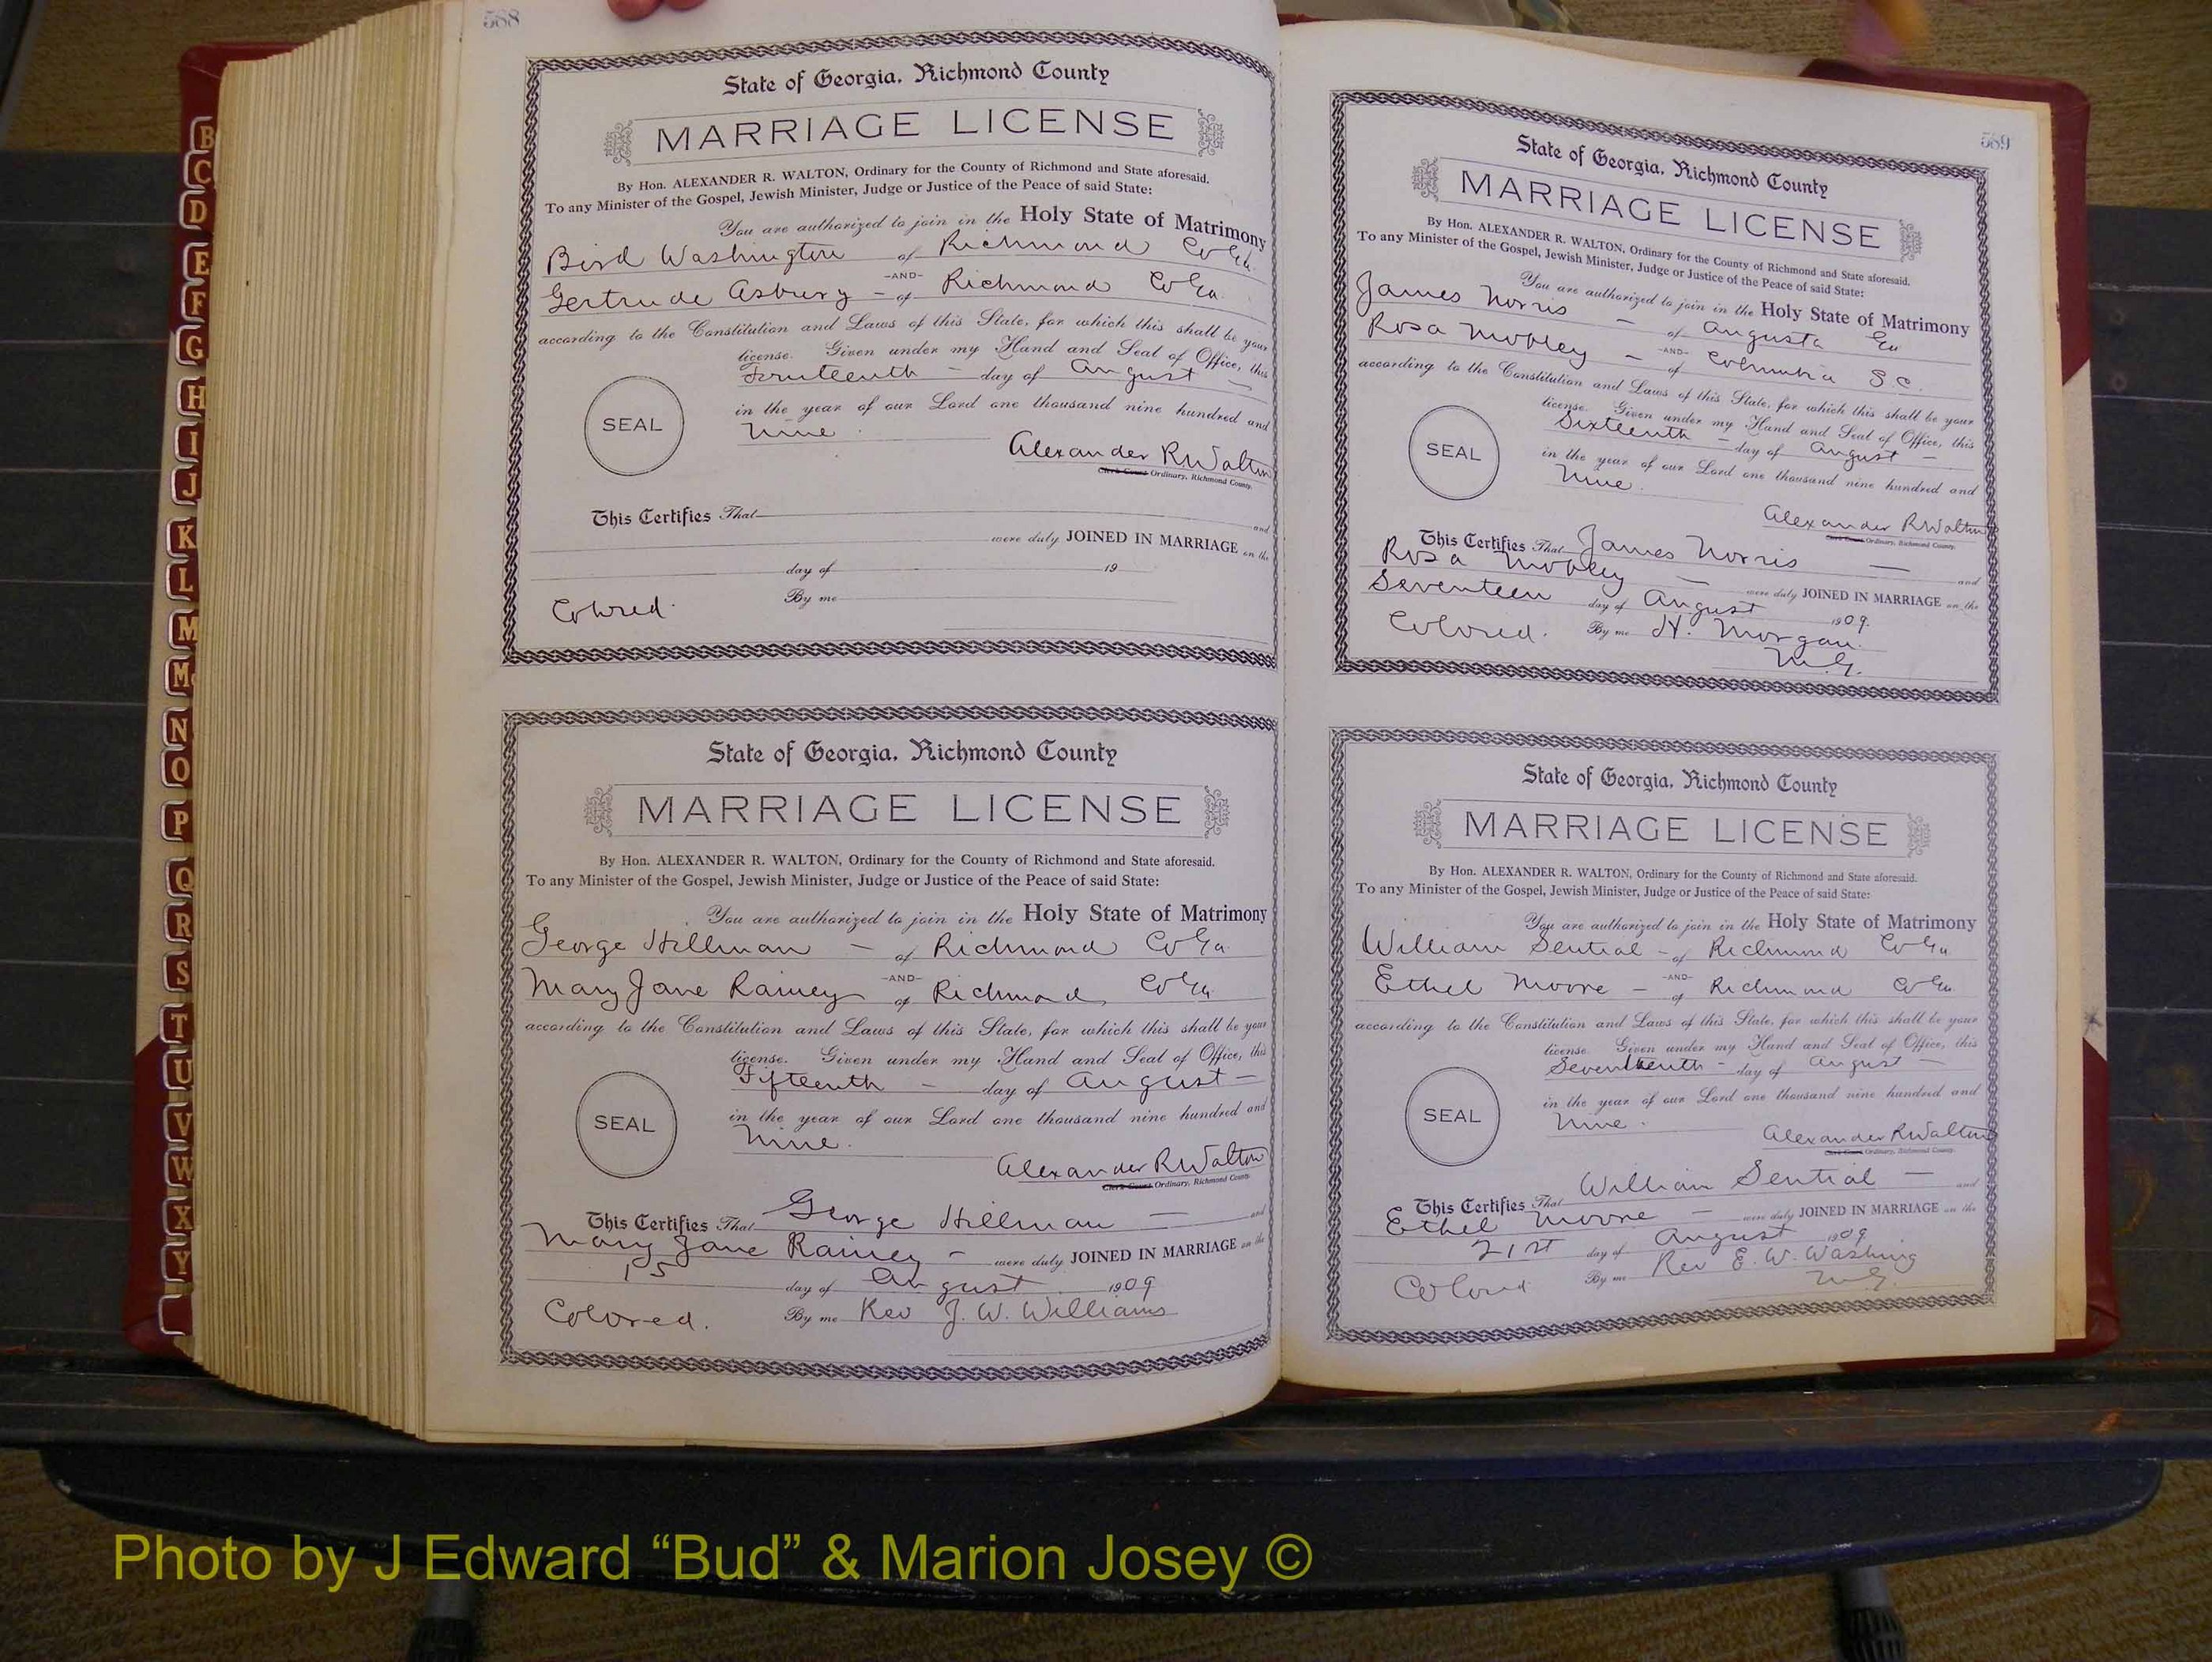 588
State of Georgia, Richmond County
MARRIAGE LICENSE
By Hon. ALEXANDER R. WALTON, Ordinary for the County of Richmond and State aforesaid.
To any Minister of the Gospel, Jewish Minister, Judge or Justice of the Peace of said State:
You are authorized to join in the Holy State of Matrimony
Bird Washington of Richmond Co Ga.
-AND-
Gertrude Asbury - of Richmond Co Ga.
according to the Constitution and Laws of this State, for which this shall be your
license. Given under my Hand and Seal of Office, this
Fourteenth - day of August -
SEAL
in the year of our Lord one thousand nine hundred and
Nine.
Alexander R Walton
Clerk Court Ordinary, Richmond County.
This Certifies That and
were duly JOINED IN MARRIAGE on the
day of 19
Colored. By me
State of Georgia, Richmond County
MARRIAGE LICENSE
By Hon. ALEXANDER R. WALTON, Ordinary for the County of Richmond and State aforesaid.
To any Minister of the Gospel, Jewish Minister, Judge or Justice of the Peace of said State:
You are authorized to join in the Holy State of Matrimony
George Hillman - of Richmond Co Ga.
-AND-
Mary Jane Rainey of Richmond Co Ga
according to the Constitution and Laws of this State, for which this shall be your
license. Given under my Hand and Seal of Office, this
Fifteenth - day of August -
SEAL
in the year of our Lord one thousand nine hundred and
Nine.
Alexander R Walton
Clerk Court Ordinary, Richmond County.
This Certifies That George Hillman - and
Mary Jane Rainey - were duly JOINED IN MARRIAGE on the
15 day of August 1909
Colored. By me Rev J. W. Williams
589
State of Georgia, Richmond County
MARRIAGE LICENSE
By Hon. ALEXANDER R. WALTON, Ordinary for the County of Richmond and State aforesaid.
To any Minister of the Gospel, Jewish Minister, Judge or Justice of the Peace of said State:
You are authorized to join in the Holy State of Matrimony
James Norris - of Augusta Ga
-AND-
Rosa Mobley - of Columbia S.C.
according to the Constitution and Laws of this State, for which this shall be your
license. Given under my Hand and Seal of Office, this
Sixteenth - day of August -
SEAL
in the year of our Lord one thousand nine hundred and
Nine.
Alexander R Walton
Clerk Court Ordinary, Richmond County.
This Certifies That James Norris - and
Rosa Mobley - were duly JOINED IN MARRIAGE on the
Seventeen day of August 1909.
Colored. By me H. Morgan.
M.G.
State of Georgia, Richmond County
MARRIAGE LICENSE
By Hon. ALEXANDER R. WALTON, Ordinary for the County of Richmond and State aforesaid.
To any Minister of the Gospel, Jewish Minister, Judge or Justice of the Peace of said State:
You are authorized to join in the Holy State of Matrimony
William Sential - of Richmond Co Ga
-AND-
Ethel Moore - of Richmond Co Ga
according to the Constitution and Laws of this State, for which this shall be your
license. Given under my Hand and Seal of Office, this
Seventeenth - day of August -
SEAL
in the year of our Lord one thousand nine hundred and
Nine.
Alexander R Walton
Clerk Court Ordinary, Richmond County.
This Certifies That William Sential - and
Ethel Moore - were duly JOINED IN MARRIAGE on the
21st day of August 1909
Colored By me Rev E. W. Washing
M.G.
B
C
D
E
F
G
H
I
J
K
L
M
Mc
N
O
P
Q
R
S
T
U
V
W
X
Y
Photo by J Edward “Bud” & Marion Josey ©